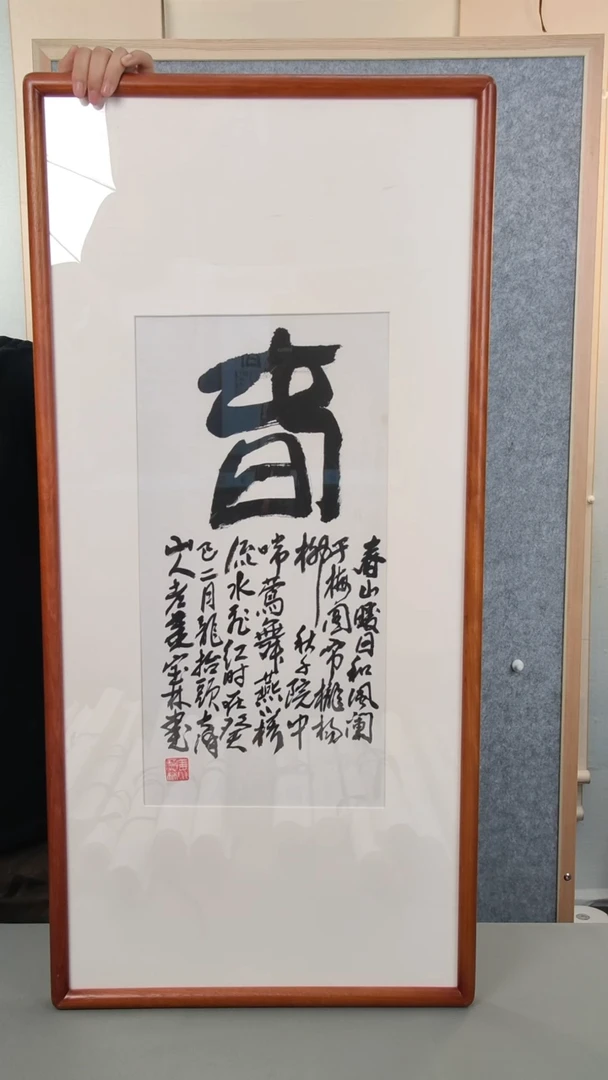 春
春山暖日和风阑
干楼阁帘栊杨
柳秋千院中
啼莺舞燕小桥
流水飞红时在癸
巳二月龍抬頭
山人老林書